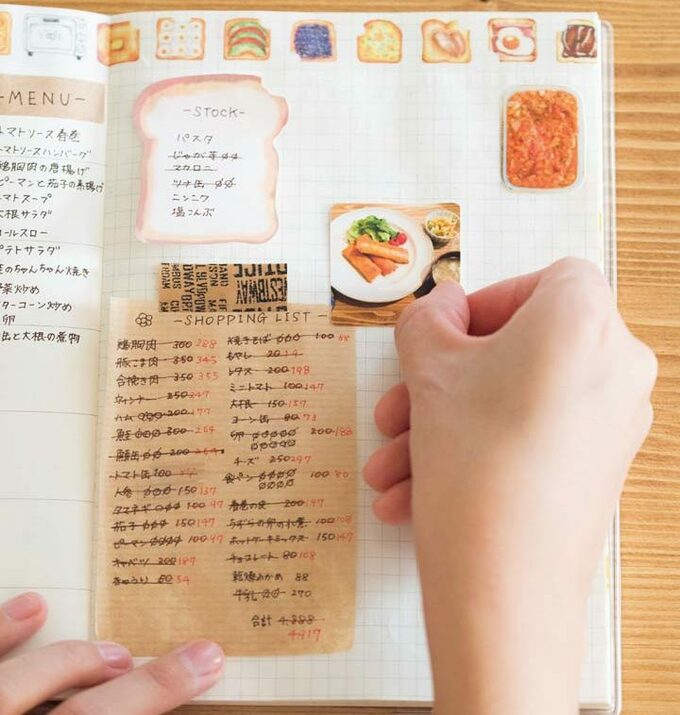 -MENU-
トマトソース春巻
トマトソースハンバーグ
鶏胸肉の唐揚げ
ピーマンと茄子の素揚げ
トマトスープ
大根サラダ
コールスロー
ポテトサラダ
のちゃんちゃん焼き
菜炒め
ターコーン炒め
卵
と大根の煮物
-STOCK-
パスタ
じゃが芋
マカロニ
ツナ缶
ニンニク
塩こんぶ
-SHOPPING LIST-
鶏胸肉 300 288
豚こま肉 350 345
合挽き肉 350 355
ウィンナー 250 247
ハム 200 177
鮭 300 264
鯖缶 200
トマト缶 100
人参 150 137
タマネギ 100 97
茄子 150 197
ピーマン 100 97
キャベツ 200 187
きゅうり 80 54
焼きそば 100 88
もやし 20 19
レタス 200 198
ミニトマト 100 147
大根 150 157
コーン缶 80 73
卵 200 188
チーズ 250 297
食パン 100 80
春巻の皮 200 197
うずらの卵の水煮 100 108
ホットケーキミックス 150 147
チョコレート 80 108
乾燥わかめ 88
牛乳 270
合計 4,888
4,917